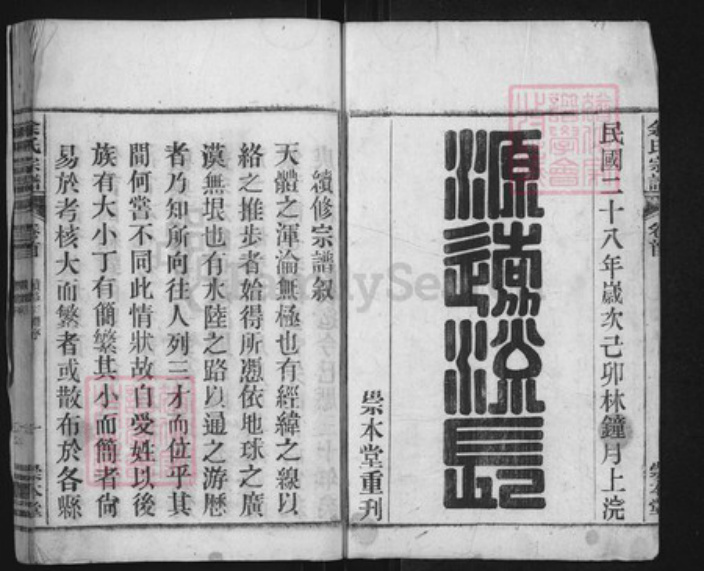 民國二十八年歲次己卯林鐘月上浣
源遠流長
崇本堂重刋
續修宗譜叙
天體之渾淪無極也有經緯之線以
絡之推步者始得所憑依地球之廣
漠無垠也有水陸之路以通之游歷
者乃知所向往人列三才而位乎其
間何嘗不同此情狀故自愛姓以後
族有大小丁有簡繁其小而簡者尙
易於考核大而繁者或散布於各縣
余氏宗譜
卷首
崇本堂